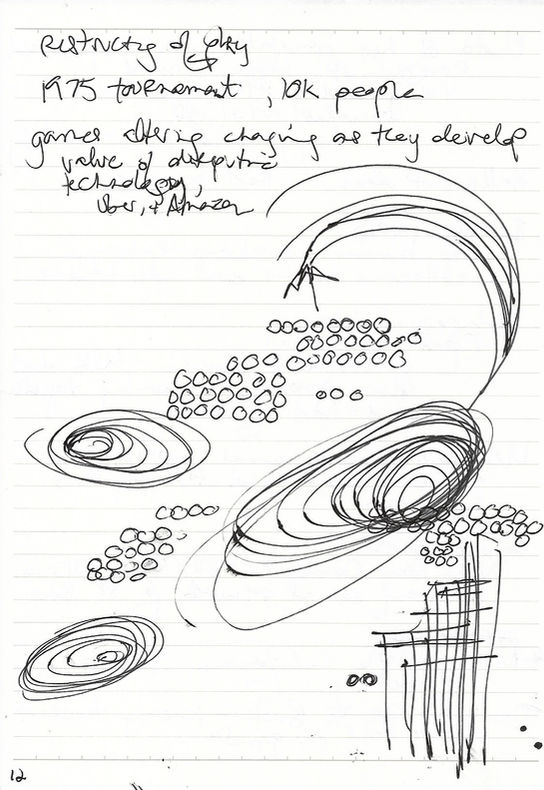 of play
1975 tournament, 10k people
games altering changing as they develop
value of
technology,
Uber, + Amazon
12